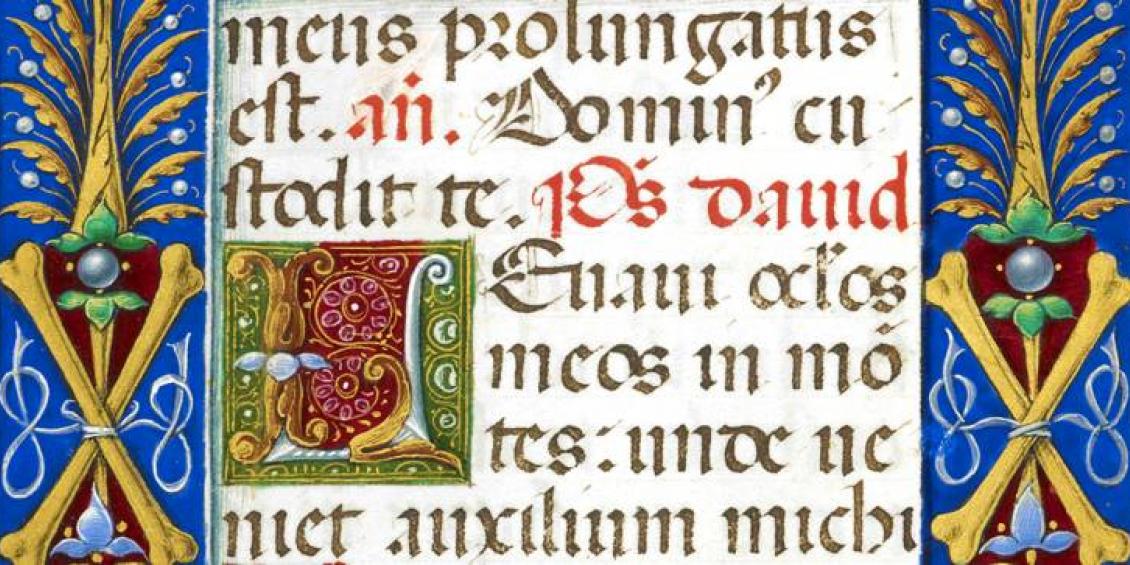 meus prolungatus
est. an̄. Domin⁹ cu
stodit te. Ps̄ dauid
LEuaui oc̄los
meos in mō
tes: unde ue
niet auxilium michi